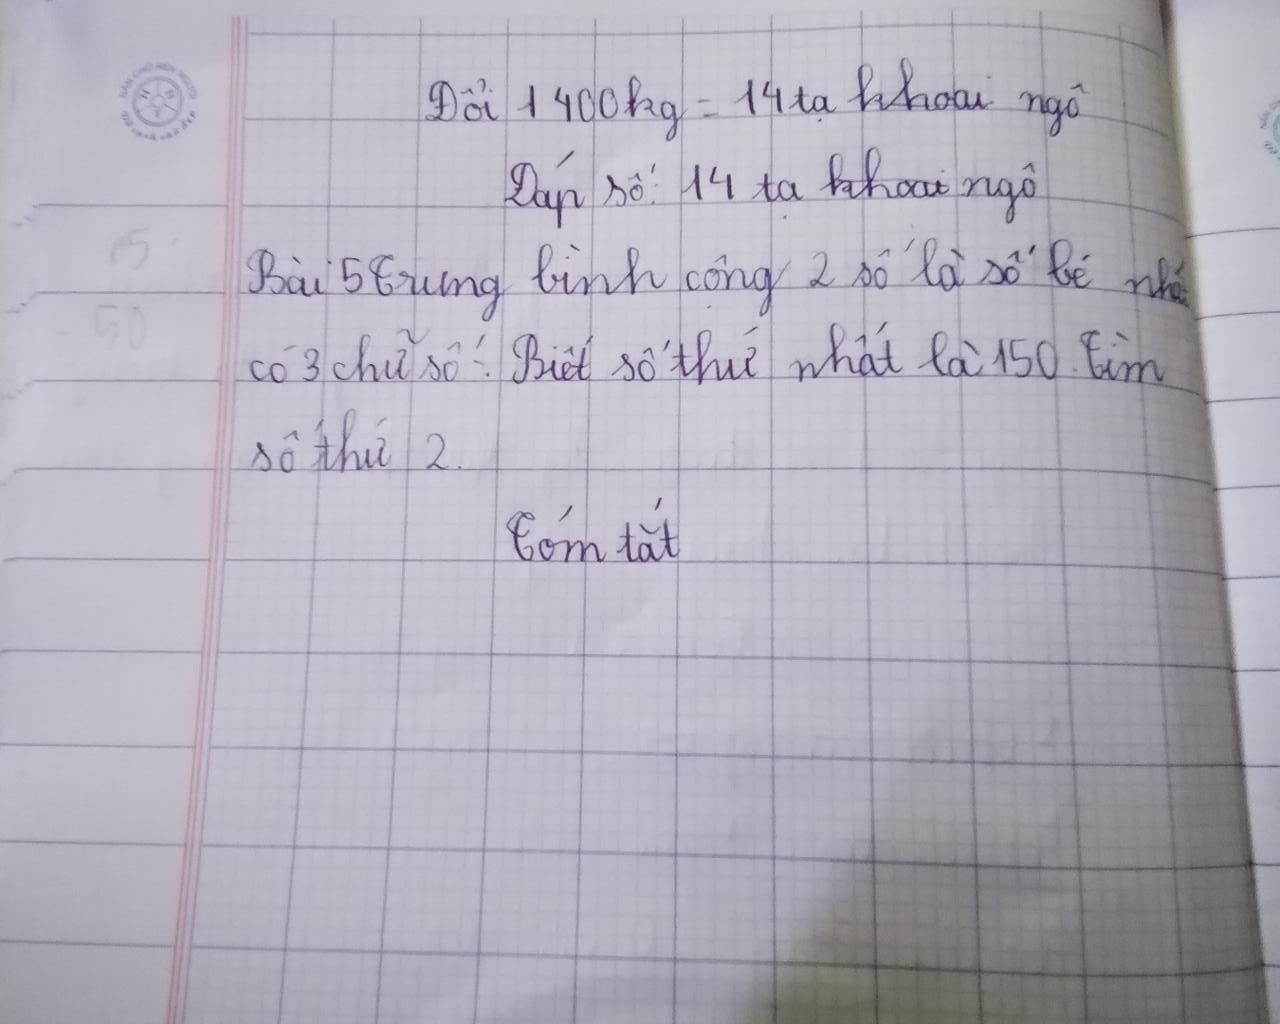 Đổi 1400kg = 14 tạ khoai ngô
Đáp số: 14 tạ khoai ngô
Bài 5 Trung bình cộng 2 số là số bé nhất
có 3 chữ số. Biết số thứ nhất là 150. Tìm
số thứ 2.
Tóm tắt